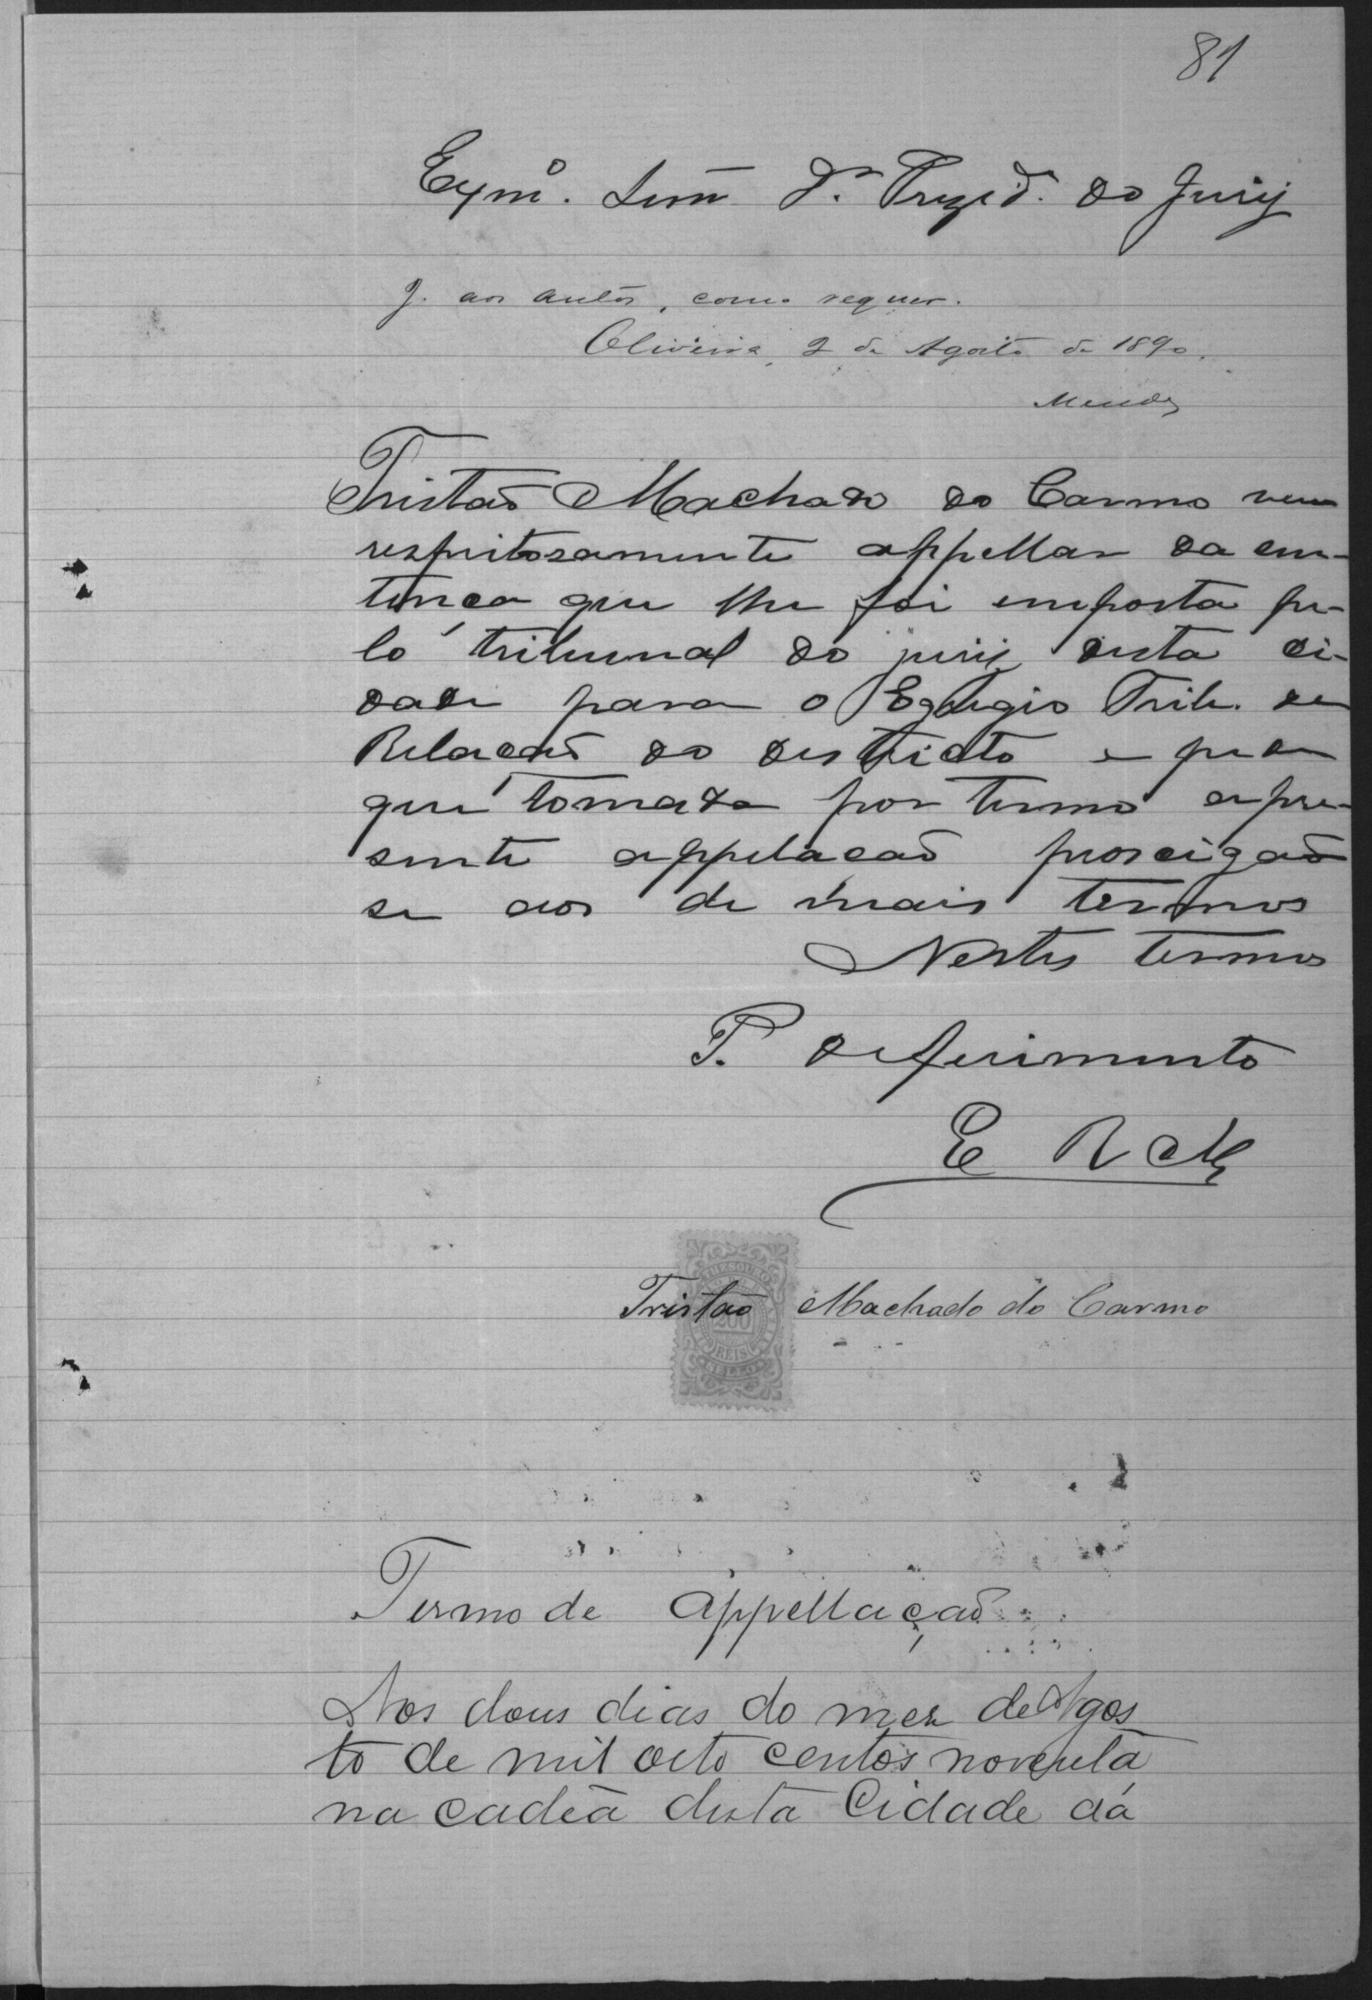 81
Exmº. Snr. Dr. Prezid. do Jury
J. aos autos, como requer.
Oliveira, 2 de Agosto de 1890.
Mendes
Tristaõ Machado do Carmo vem
respeitosamente appellar da cen-
tença que lhe foi emposta pe-
lo tribunal do jury desta ci-
dade para o Egregio Trib. de
Relacaõ do destricto e pede
que tomada por termo apre-
sente appelacaõ prosigaõ
se aos de mais termos
Nestes termos
P. deferimento
E R M
THESOURO
200
REIS
Tristão Machado do Carmo
Termo de appellaçaõ
Aos dous dias do mez de Agos
to de mil oito centos noventa
na cadêa desta Cidade da